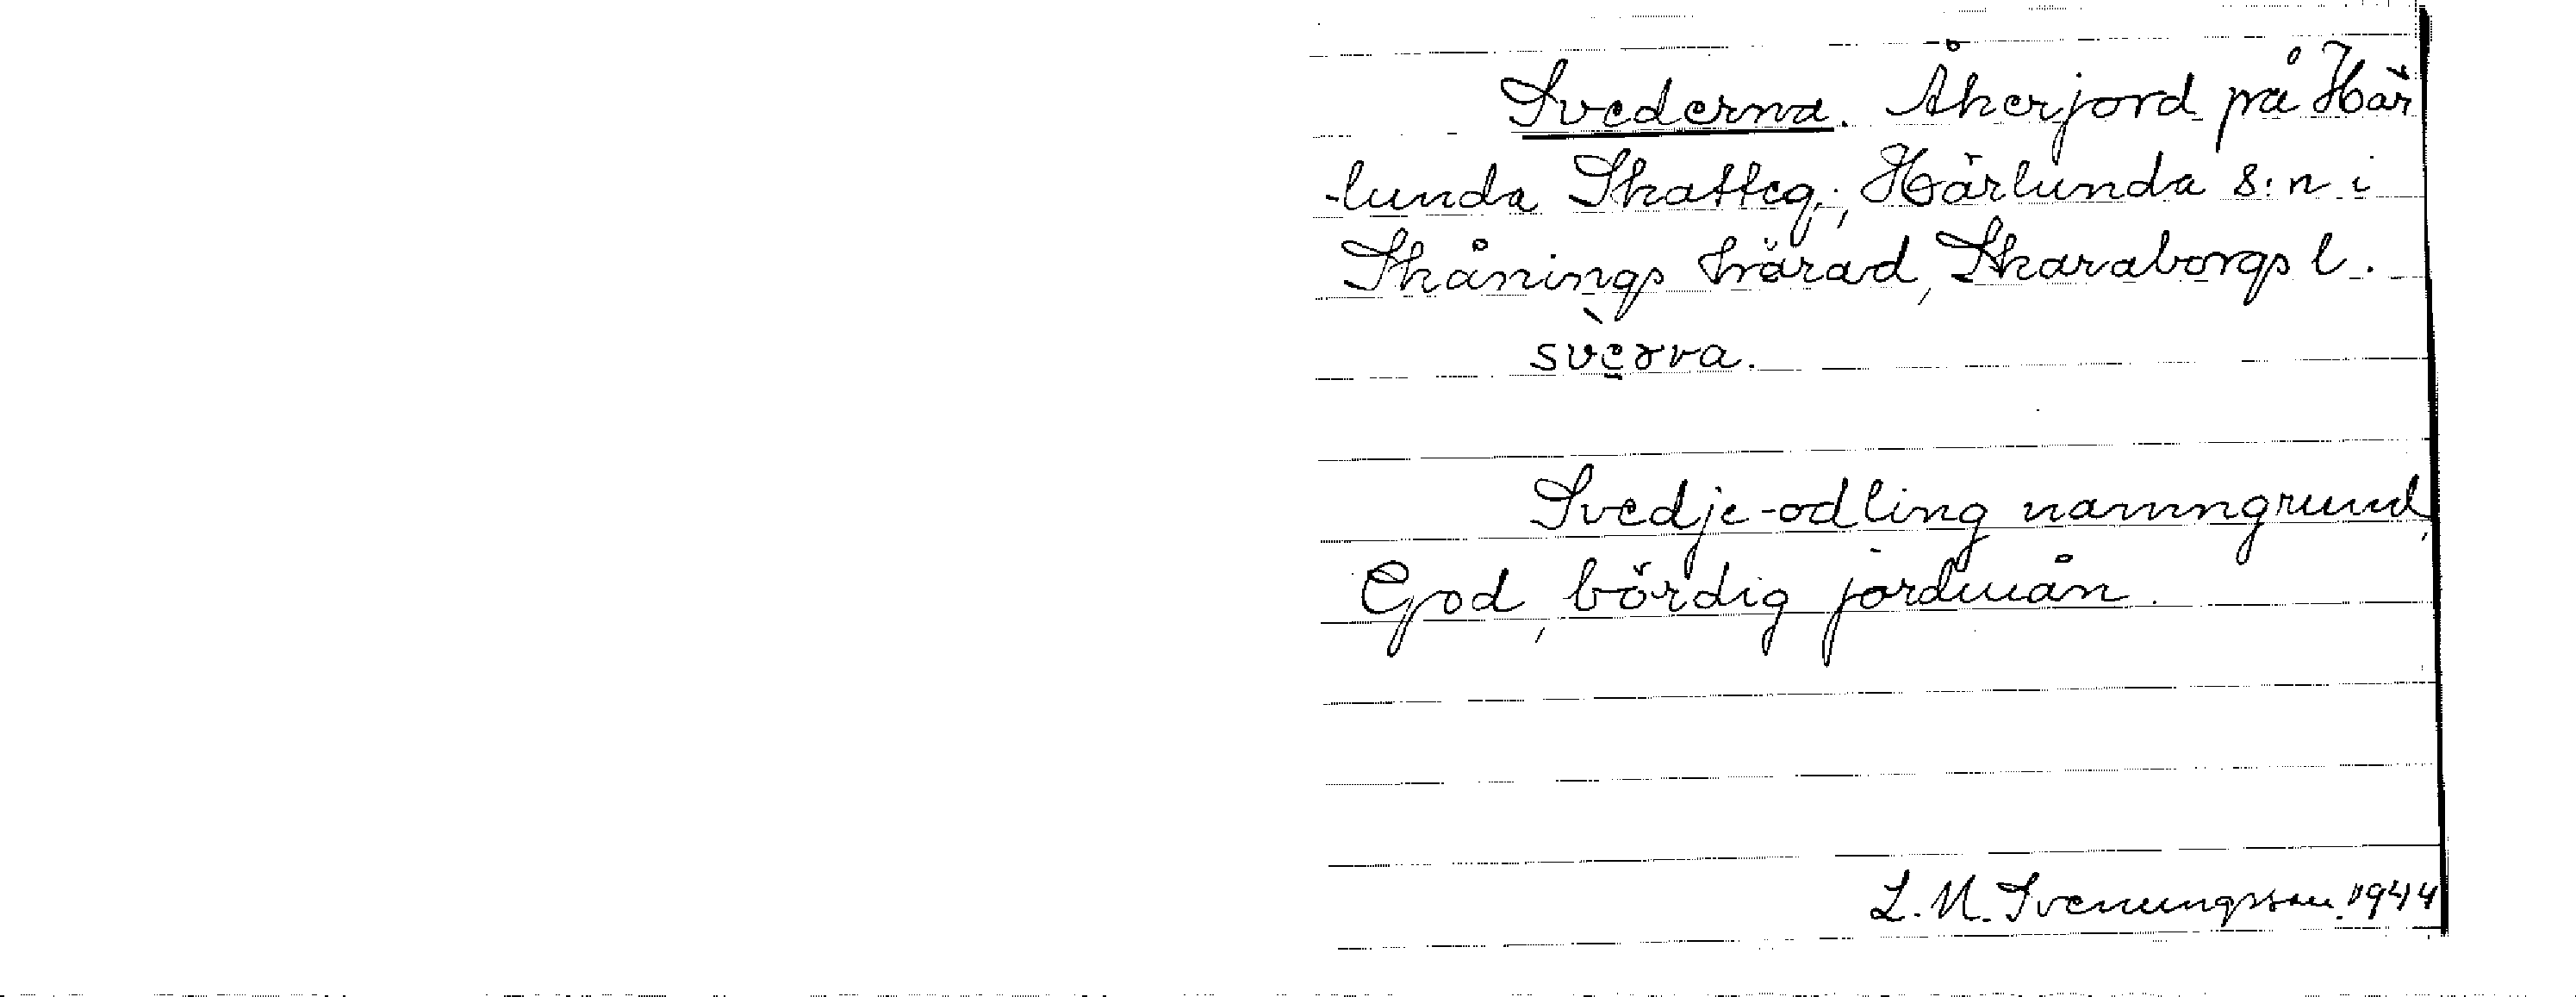 Svederna. Åkerjord på Här
-lunda Skatteg., Härlunda s:n i
Skånings härad, Skaraborgs l.
svèrva.
Svedje-odling namngrund,
God, bördig jordmån.
L. M. Svenungsson. 1944